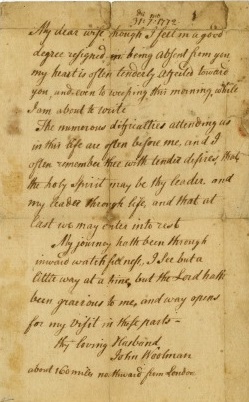 31. 7. 1772
My dear wife though I feel in a good
degree resigned in being absent from you
my heart is often tenderly affected toward
you and even to weeping this morning, while
I am about to write
The numerous difficulties attending us
in this life are often before me, and I
often remember thee with tender desires, that
the holy Spirit may be thy leader. and
my leader through life, and that at
last we may enter into rest
My journey hath been through
inward watchfulness, I see but a
little way at a time, but the Lord hath
been gracious to me, and way opens
for my visit in these parts -
thy loving Husband
John Woolman
about 160 miles northward from London